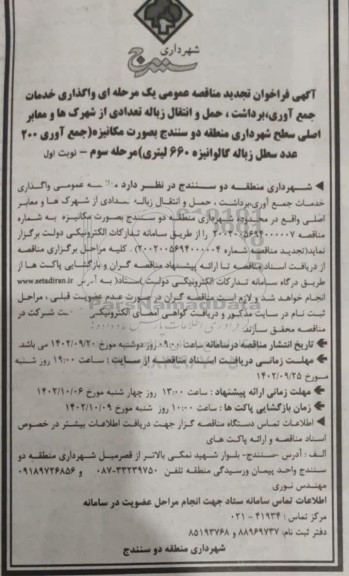 شهرداری
سنندج
آگهی فراخوان تجدید مناقصه عمومی یک مرحله ای واگذاری خدمات
جمع آوری،برداشت ، حمل و انتقال زباله تعدادی از شهرک ها و معابر
اصلی سطح شهرداری منطقه دو سنندج بصورت مکانیزه(جمع آوری ۲۰۰
عدد سطل زباله گالوانیزه ۶۶۰ لیتری)مرحله سوم – نوبت اول
شهرداری منطقه دو سنندج در نظر دارد عمومی واگذاری
خدمات جمع آوری،برداشت ، حمل و انتقال زباله تعدادی از شهرک ها و معابر
اصلی واقع در محدوده شهرداری منطقه دو سنندج بصورت مکانیزه به شماره
را از طریق سامانه تدارکات الکترونیکی دولت برگزار
نماید(تجدید مناقصه شماره . کلیه مراحل برگزاری مناقصه
از دریافت اسناد مناقصه تا ارائه پیشنهاد مناقصه گران و بازگشایی پاکت ها از
طریق درگاه سامانه تدارکات الکترونیکی دولت (ستاد) به آدرس www.setadiran.ir
انجام خواهد شد و لازم است مناقصه گران در صورت عدم عضویت قبلی ، مراحل
ثبت نام در سایت مذکور و دریافت گواهی امضای الکترونیکی جهت شرکت در
مناقصه محقق سازند
تاریخ انتشار مناقصه در سامانه ساعت ۰۹:۰۰ روز دوشنبه مورخ ۱۴۰۲/۰۹/۲۰ می باشد.
مهلت زمانی دریافت اسناد مناقصه از سایت : ساعت ۱۹:۰۰ روز شنبه
مورخ ۱۴۰۲/۰۹/۲۵
مهلت زمانی ارائه پیشنهاد : ساعت ۱۳:۰۰ روز چهار شنبه مورخ ۱۴۰۲/۱۰/۰۶
زمان بازگشایی پاکت ها : ساعت ۱۰:۰۰ روز شنبه مورخ ۱۴۰۲/۱۰/۰۹
اطلاعات تماس دستگاه مناقصه گزار جهت دریافت اطلاعات بیشتر در خصوص
اسناد مناقصه و ارائه پاکت های
الف : آدرس -سنندج- بلوار شهید نمکی بالاتر از قصرمبل شهرداری منطقه دو
سنندج واحد پیمان ورسیدگی منطقه تلفن ۳۳۲۳۹۷۵۰-۰۸۷ و ۰۹۱۸۹۷۲۶۸۵۶
مهندس نوری
اطلاعات تماس سامانه ستاد جهت انجام مراحل عضویت در سامانه
مرکز تماس : ۴۱۹۳۴ – ۰۲۱
دفتر ثبت نام: ۸۸۹۶۹۷۳۷ و ۸۵۱۹۳۷۶۸
شهرداری منطقه دو سنندج